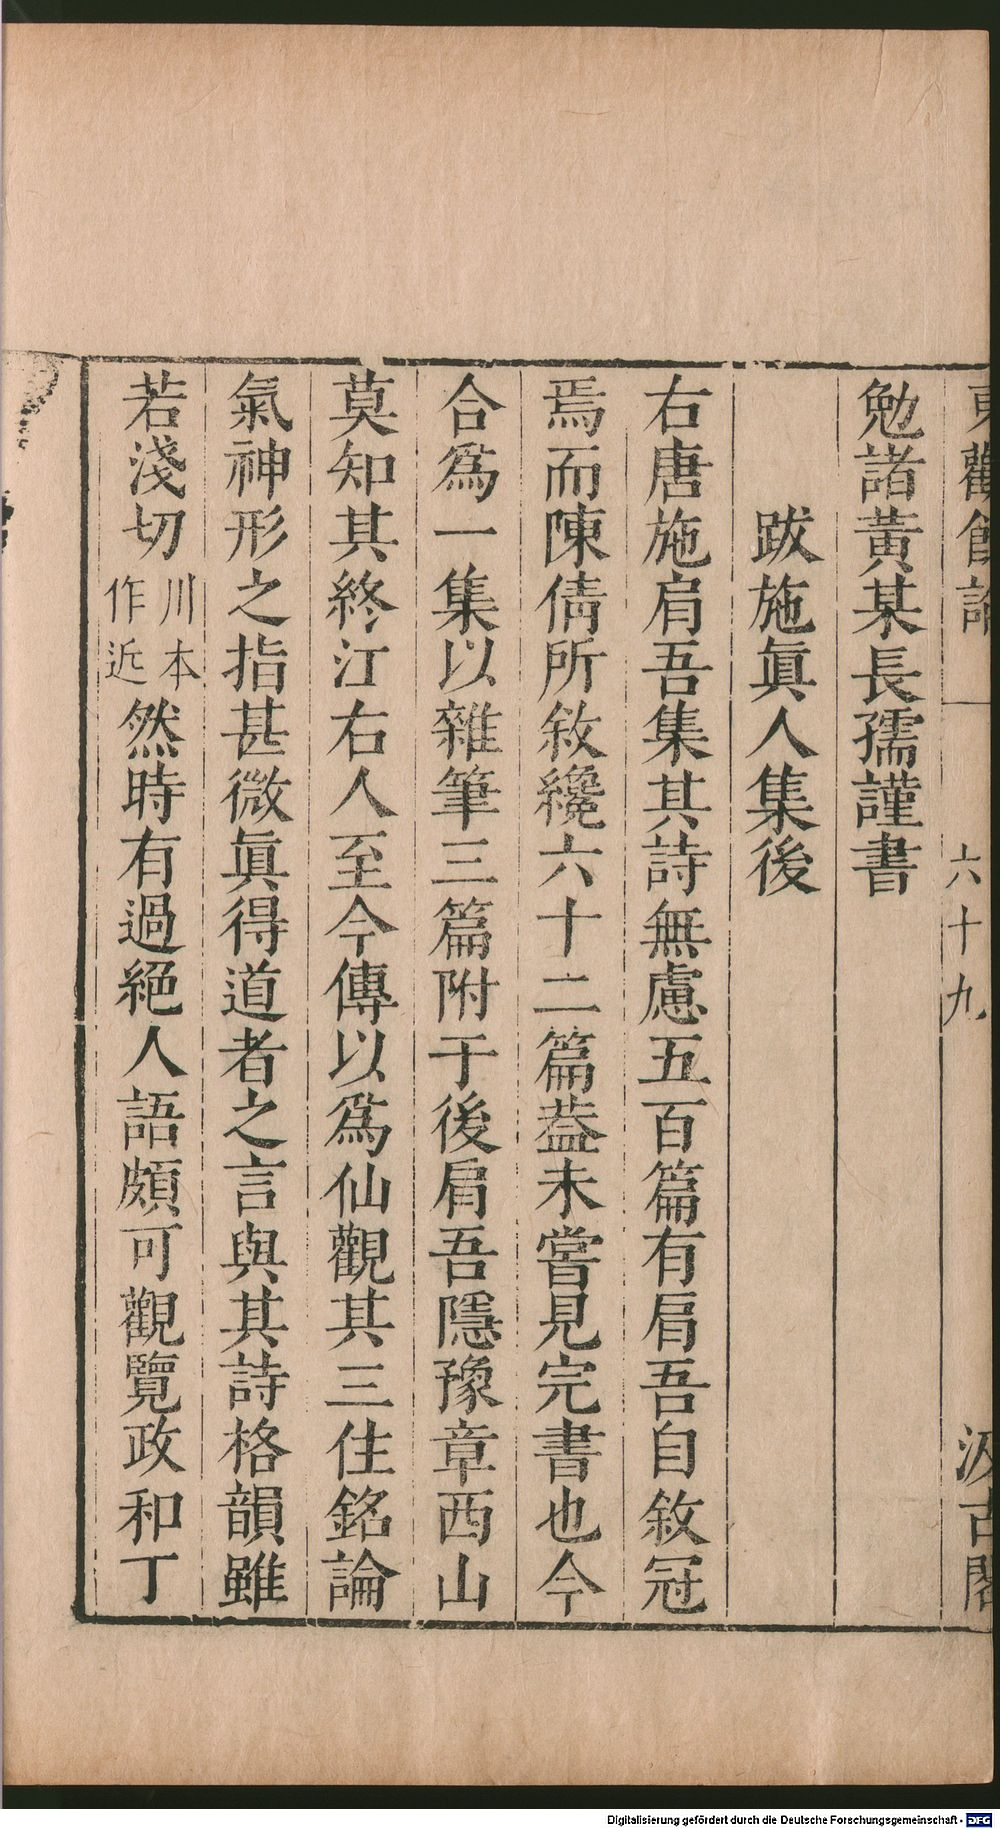 東觀餘論
六十九
汲古閣
勉諸黃某長孺謹書
跋施眞人集後
右唐施肩吾集其詩無慮五百篇有肩吾自敘冠
焉而陳倩所敘纔六十二篇葢未嘗見完書也今
合爲一集以雜筆三篇附于後肩吾隱豫章西山
莫知其終江右人至今傳以爲仙觀其三住銘論
氣神形之指甚微眞得道者之言與其詩格韻雖
若淺切川本作近然時有過絕人語頗可觀覽政和丁
Digitalisierung gefördert durch die Deutsche Forschungsgemeinschaft - DFG